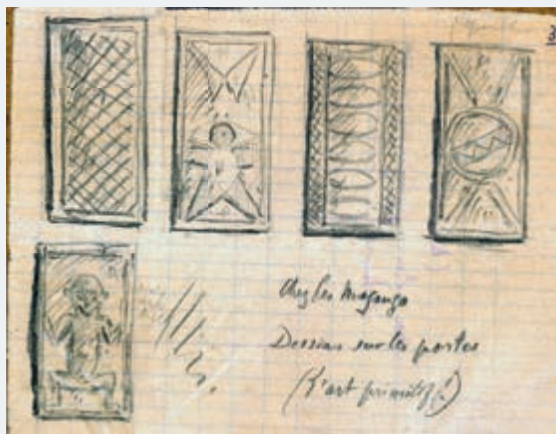 3
Chez les Maganga
Dessins sur les portes
(L'art primitif!)